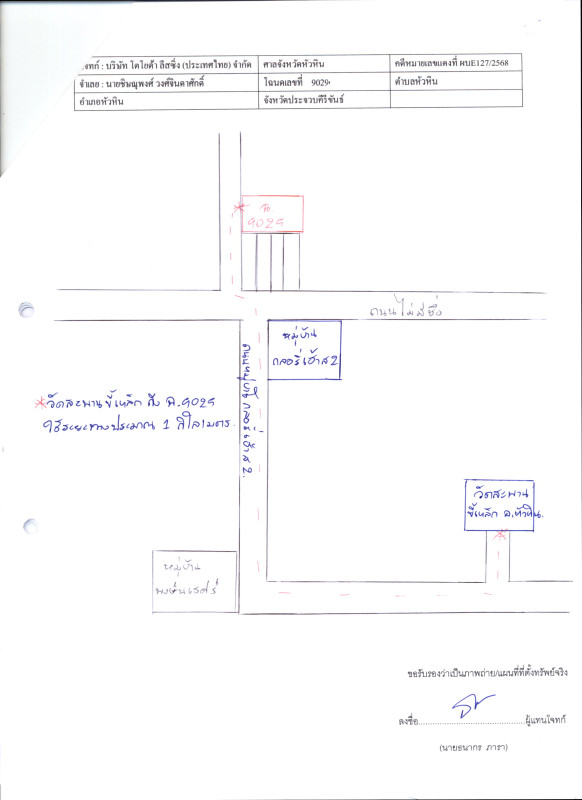 โจทก์ : บริษัท โตโยต้า ลีสซิ่ง (ประเทศไทย) จำกัด ศาลจังหวัดหัวหิน คดีหมายเลขแดงที่ ผบE127/2568
จำเลย : นายชิษณุพงศ์ วงศ์จินดาศักดิ์ โฉนดเลขที่ 9029 ตำบลหัวหิน
อำเภอหัวหิน จังหวัดประจวบคีรีขันธ์
ฉ. 9029
ถนนไม่มีชื่อ
หมู่บ้าน
กลอรี่เฮ้าส 2
ถนนหมู่บ้านกลอรี่เฮ้าส 2.
*วัดสะพานขี้เหล็ก ถึง ฉ.9029
ใช้ระยะทางประมาณ 1 กิโลเมตร.
วัดสะพาน
ขี้เหล็ก อ.หัวหิน.
หมู่บ้าน
ขอรับรองว่าเป็นภาพถ่าย/แผนที่ที่ตั้งทรัพย์จริง
ลงชื่อ..........................................ผู้แทนโจทก์
(นายธนากร ภารา)